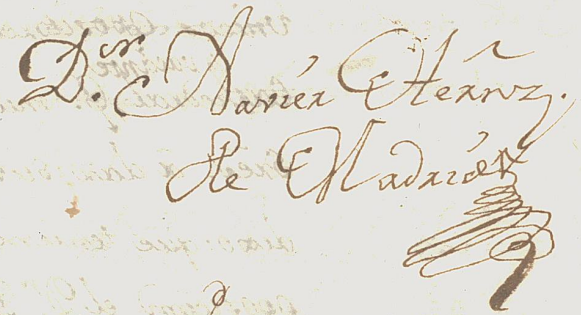 Dr. Xavier Hernz.
de Madrid